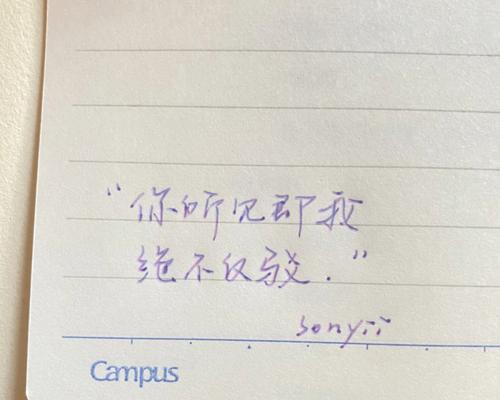 “你听见即我
绝不仅驳.”
sonyii
Campus